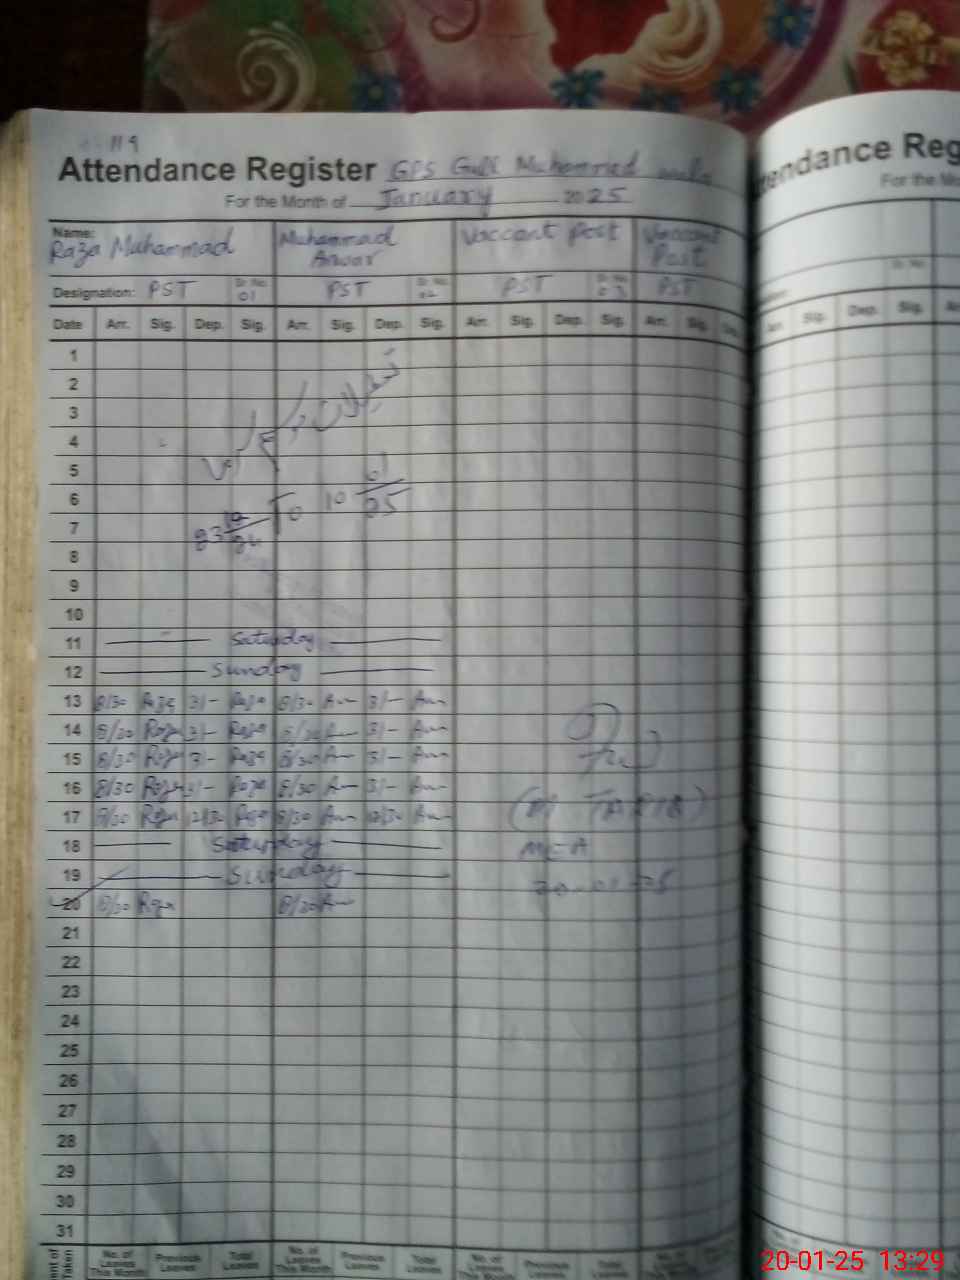 119
Attendance Register GPS Gull Muhammad wala
For the Month of January 2025
Name: Raza Muhammad Muhammad Anwar Vaccant Post Vaccant Post
Designation: PST Sr. No. 01 PST Sr. No. 02 PST Sr. No. 03 PST
Date Arr. Sig. Dep. Sig. Arr. Sig. Dep. Sig. Arr. Sig. Dep. Sig. Arr. Sig. Dep.
1
2
3
4
5
6
7
8
9
10
تعطیلات موسم سرما
23 12/24 To 10 01/25
11 Saturday
12 Sunday
13 8/30 Raza 3/- Raza 8/30 Anw 3/- Anw
14 8/30 Raza 3/- Raza 8/30 Anw 3/- Anw
15 8/30 Raza 3/- Raza 8/30 Anw 3/- Anw
16 8/30 Raza 3/- Raza 8/30 Anw 3/- Anw
17 8/30 Raza 12/30 Raza 8/30 Anw 12/30 Anw
18 Saturday
MEA
19 Sunday
20-01-25
20 8/30 Raza 8/30 Anw
21
22
23
24
25
26
27
28
29
30
31
No. of Leaves This Month Previous Leaves Total Leaves No. of Leaves This Month Previous Leaves Total Leaves No. of Leaves Previous Leaves Total Leaves
endance Reg
For the Mo
Sr. No.
Sig. Dep. Sig.
20-01-25 13:29